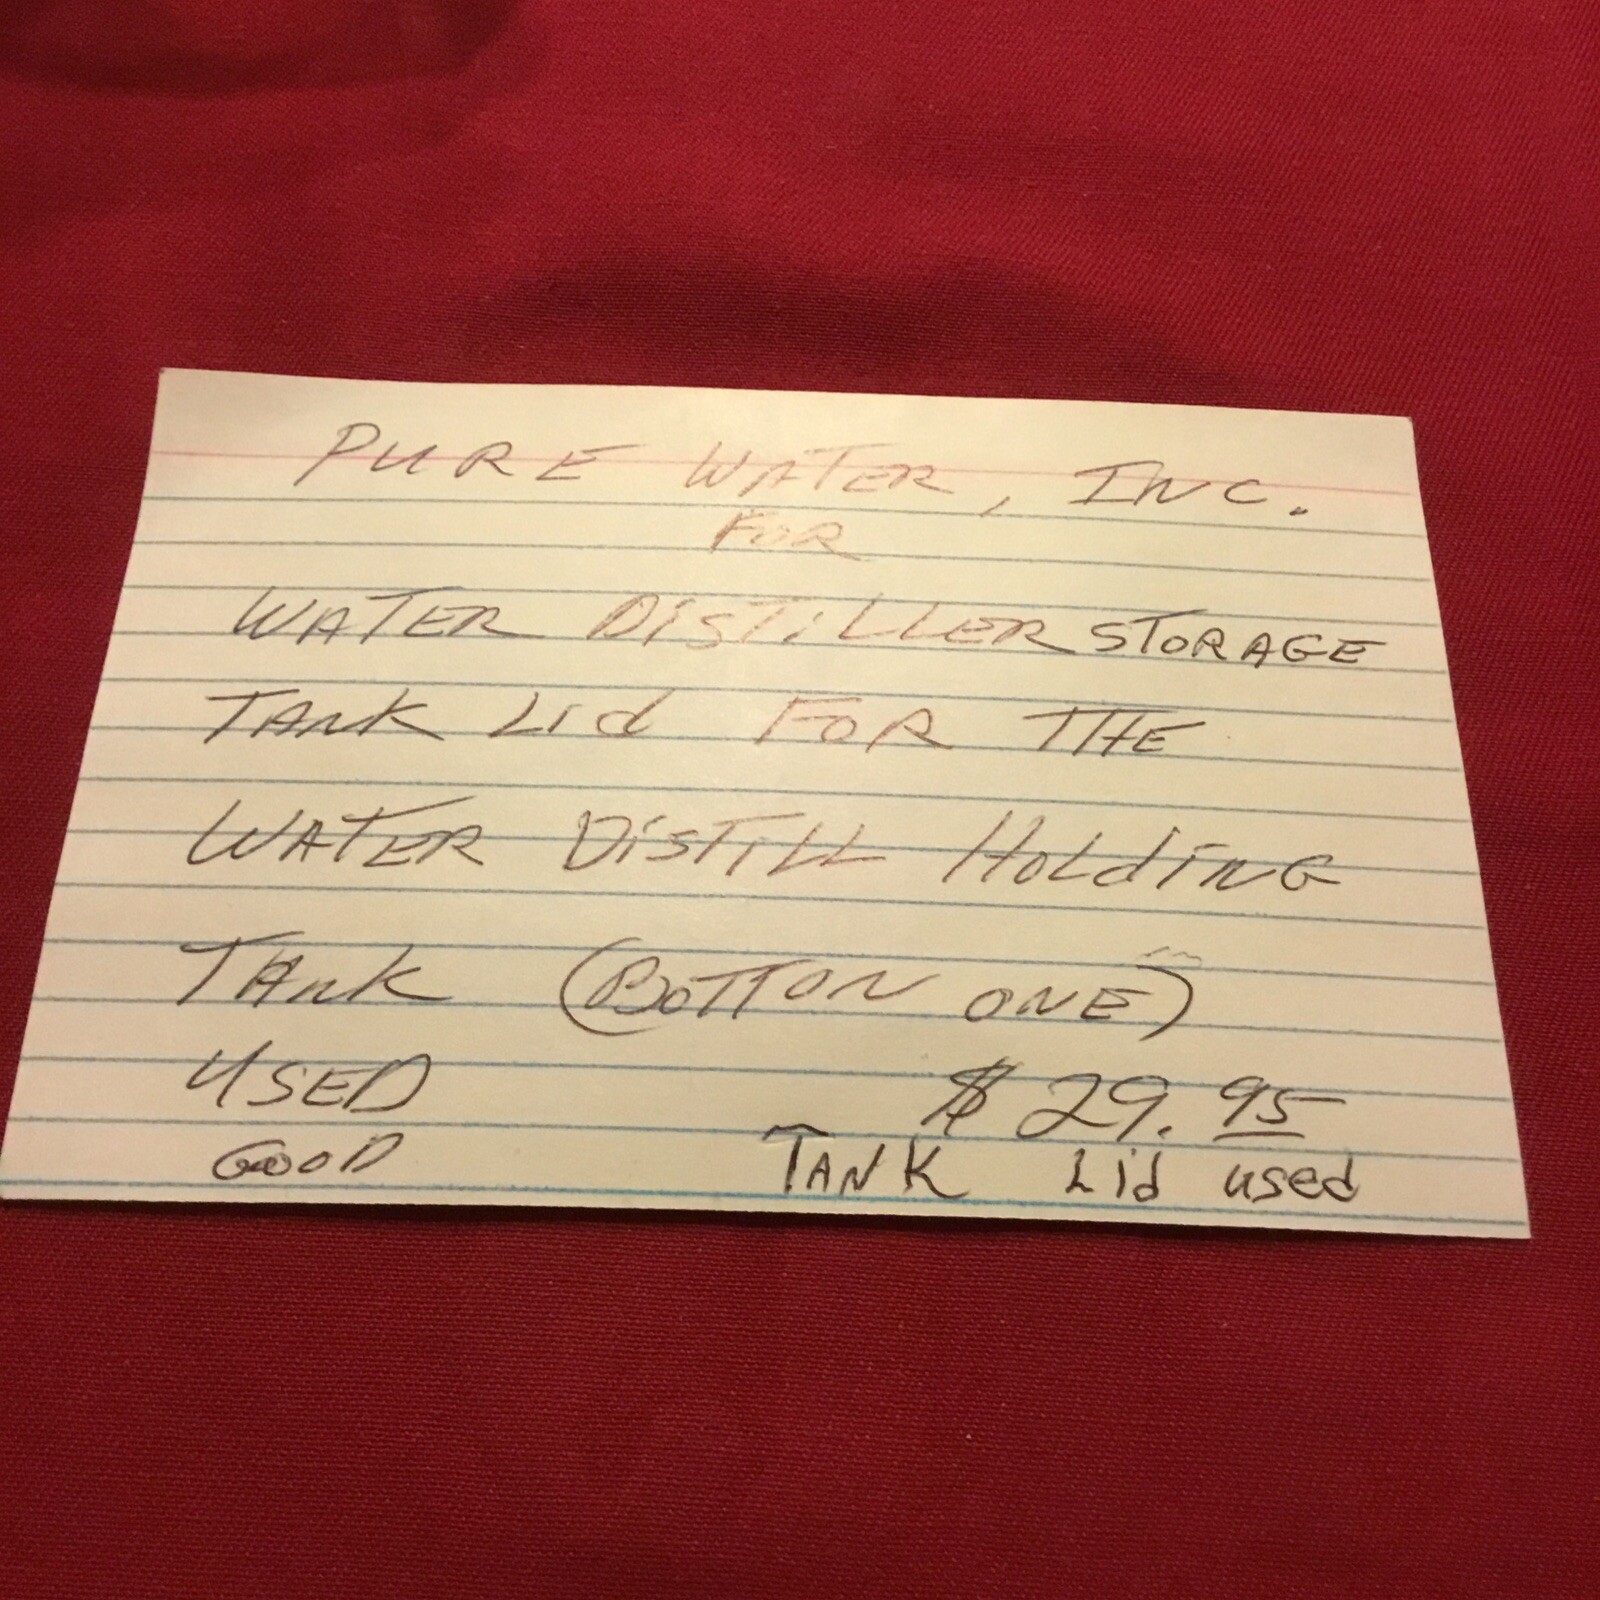 PURE WATER, INC.
FOR
WATER DiSTiLLER STORAGE
TANK Lid FOR THE
WATER DiSTiLL HOLdiNG
TANK (BOTTON ONE)
USED $ 29.95
GOOD TANK Lid used